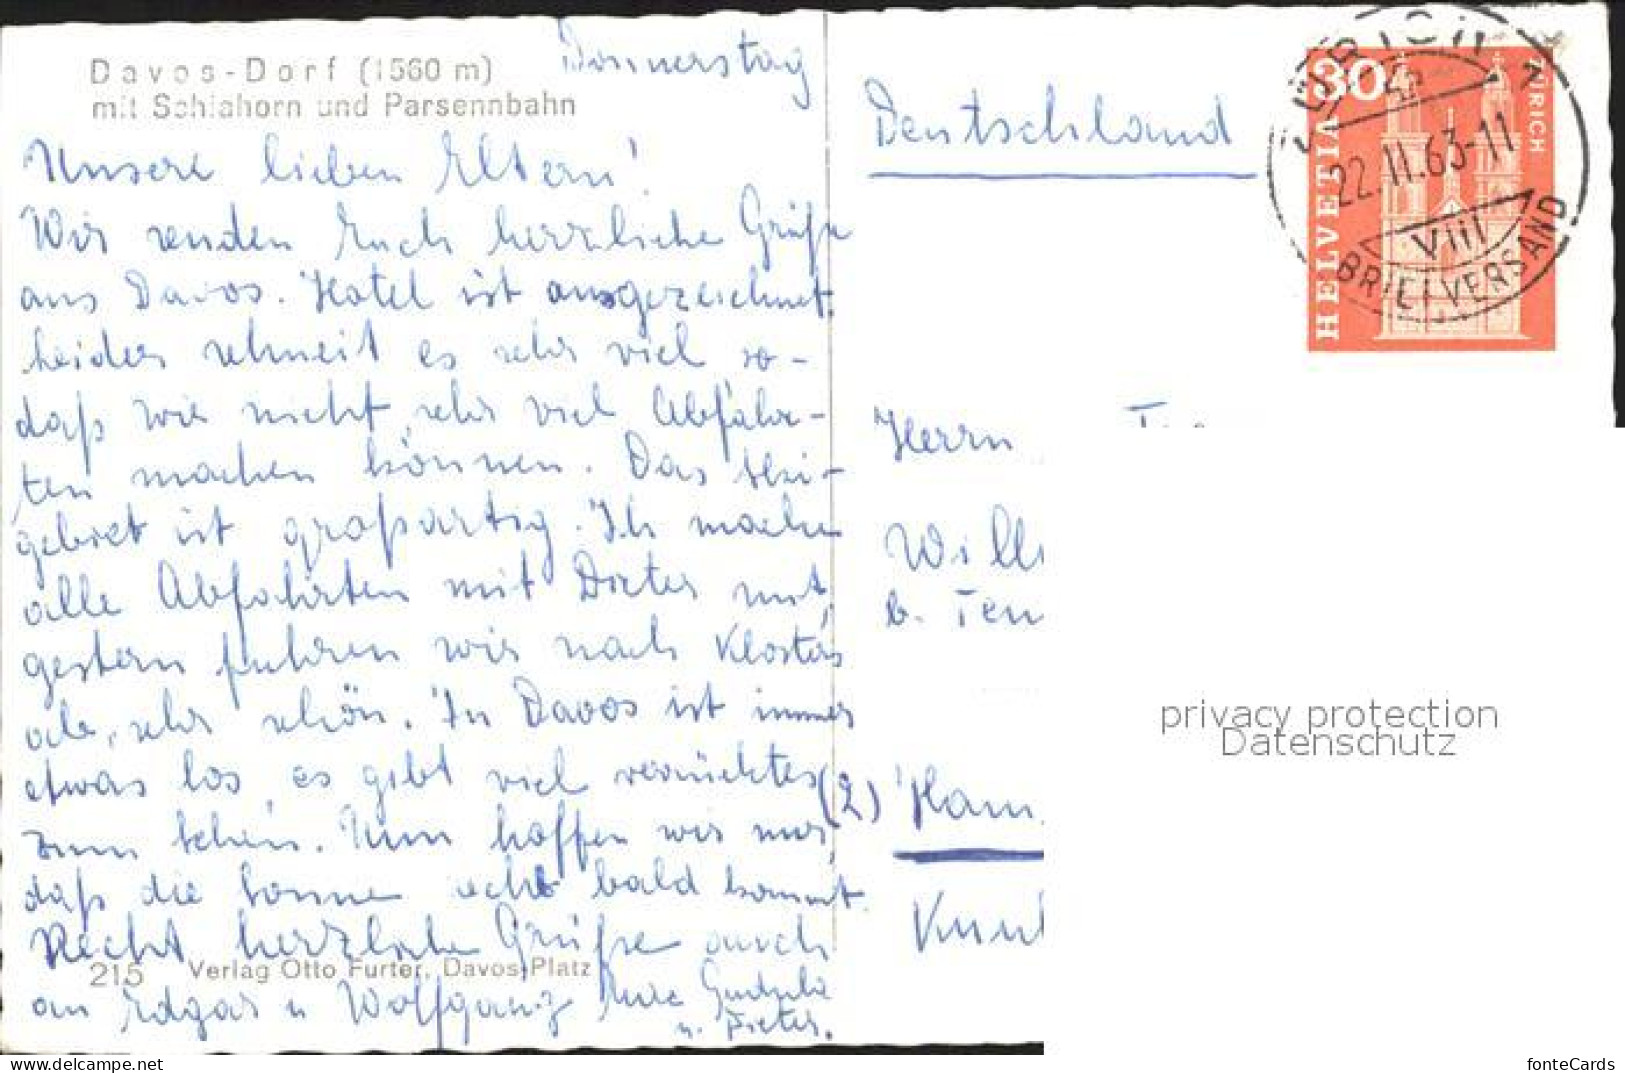 Davos-Dorf (1560 m)
mit Schiahorn und Parsennbahn
Donnerstag
Unsere lieben Eltern!
Wir senden Euch herzliche Grüße
aus Davos. Hotel ist ausgezeichnet.
leider schneit es sehr viel so-
daß wir nicht sehr viel Abfahr-
ten machen können. Das Ski-
gebiet ist großartig. Ich mache
alle Abfahrten mit Dieter mit,
gestern fuhren wir nach Klosters
ab, sehr schön. In Davos ist immer
etwas los, es gibt viel verrücktes
zum sehen. Nun hoffen wir nur,
daß die Sonne recht bald kommt.
Recht herzliche Grüße auch
an Edgar u Wolfgang Eure
u. Dieter.
215 Verlag Otto Furter, Davos-Platz
Deutschland
HELVETIA
30
ZÜRICH
22.11.63-11
VIII
BRIEFVERSAND
Herrn
Will
b. Ten
(2) Ham
privacy protection
Datenschutz
www.delcampe.net
fonteCards